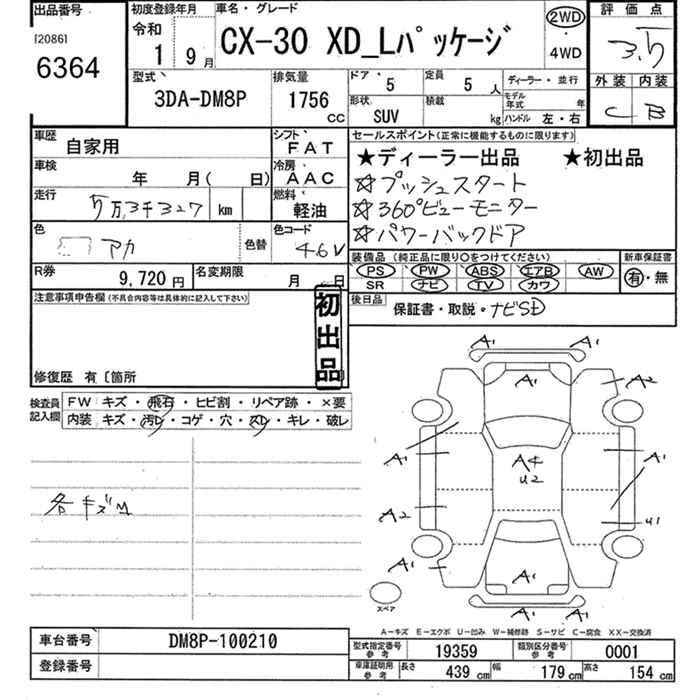 出品番号
[2086]
6364
初度登録年月
令和
1 9月
車名・グレード
CX-30 XD_Lパッケージ
2WD
・
4WD
評価点
3.5
外装 内装
C B
型式
3DA-DM8P
排気量
1756 CC
ドア 5
形状 SUV
定員 5 人
積載 kg
ディーラー・並行
モデル年式 年
ハンドル 左・右
車歴 自家用
シフト FAT
車検 年 月( 日)
冷房 AAC
走行 5万,3千327 km
燃料 軽油
色 アカ
色替
色コード 46V
R券 9,720円
名変期限 月 日
セールスポイント(正常に機能するものに限ります)
★ディーラー出品 ★初出品
☆プッシュスタート
☆360°ビューモニター
☆パワーバックドア
装備品(純正品に限り○をつけてください)
PS PW ABS エアB AW
SR ナビ TV カワ
新車保証書
有・無
後日品
保証書・取説・ナビSD
注意事項申告欄(不具合内容等は具体的に記入して下さい)
初出品
修復歴 有〔箇所
検査員記入欄
FW キズ・飛石・ヒビ割・リペア跡・×要
内装 キズ・汚レ・コゲ・穴・スレ・キレ・破レ
各キズM
A1 A1
A1 A2
A1 A4 U2 A1
A2 U1
A1 A1
スペア
A1 A1
A−キズ E−エクボ U−凹み W−補修跡 S−サビ C−腐食 XX−交換済
車台番号 DM8P-100210
登録番号
型式指定番号 参考 19359
類別区分番号 参考 0001
車庫証明用 参考 長さ 439 cm 幅 179 cm 高さ 154 cm